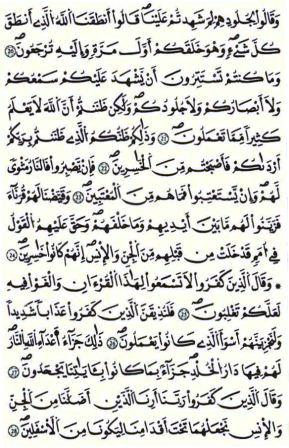 وَقَالُوا۟ لِجُلُودِهِمْ لِمَ شَهِدتُّمْ عَلَيْنَا ۖ قَالُوٓا۟ أَنطَقَنَا ٱللَّهُ ٱلَّذِىٓ أَنطَقَ
كُلَّ شَىْءٍ ۚ وَهُوَ خَلَقَكُمْ أَوَّلَ مَرَّةٍ وَإِلَيْهِ تُرْجَعُونَ
وَمَا كُنتُمْ تَسْتَتِرُونَ أَن يَشْهَدَ عَلَيْكُمْ سَمْعُكُمْ
وَلَآ أَبْصَـٰرُكُمْ وَلَا جُلُودُكُمْ ۖ وَلَـٰكِن ظَنَنتُمْ أَنَّ ٱللَّهَ لَا يَعْلَمُ
كَثِيرًا مِّمَّا تَعْمَلُونَ وَذَٰلِكُمْ ظَنُّكُمُ ٱلَّذِى ظَنَنتُم بِرَبِّكُمْ
أَرْدَىٰكُمْ فَأَصْبَحْتُم مِّنَ ٱلْخَـٰسِرِينَ فَإِن يَصْبِرُوا۟ فَٱلنَّارُ مَثْوًى
لَّهُمْ ۖ وَإِن يَسْتَعْتِبُوا۟ فَمَا هُم مِّنَ ٱلْمُعْتَبِينَ وَقَيَّضْنَا لَهُمْ قُرَنَآءَ
فَزَيَّنُوا۟ لَهُم مَّا بَيْنَ أَيْدِيهِمْ وَمَا خَلْفَهُمْ وَحَقَّ عَلَيْهِمُ ٱلْقَوْلُ
فِىٓ أُمَمٍ قَدْ خَلَتْ مِن قَبْلِهِم مِّنَ ٱلْجِنِّ وَٱلْإِنسِ ۖ إِنَّهُمْ كَانُوا۟ خَـٰسِرِينَ
وَقَالَ ٱلَّذِينَ كَفَرُوا۟ لَا تَسْمَعُوا۟ لِهَـٰذَا ٱلْقُرْءَانِ وَٱلْغَوْا۟ فِيهِ
لَعَلَّكُمْ تَغْلِبُونَ فَلَنُذِيقَنَّ ٱلَّذِينَ كَفَرُوا۟ عَذَابًا شَدِيدًا
وَلَنَجْزِيَنَّهُمْ أَسْوَأَ ٱلَّذِى كَانُوا۟ يَعْمَلُونَ ذَٰلِكَ جَزَآءُ أَعْدَآءِ ٱللَّهِ ٱلنَّارُ ۖ
لَهُمْ فِيهَا دَارُ ٱلْخُلْدِ ۖ جَزَآءًۢ بِمَا كَانُوا۟ بِـَٔايَـٰتِنَا يَجْحَدُونَ
وَقَالَ ٱلَّذِينَ كَفَرُوا۟ رَبَّنَآ أَرِنَا ٱلَّذَيْنِ أَضَلَّانَا مِنَ ٱلْجِنِّ
وَٱلْإِنسِ نَجْعَلْهُمَا تَحْتَ أَقْدَامِنَا لِيَكُونَا مِنَ ٱلْأَسْفَلِينَ